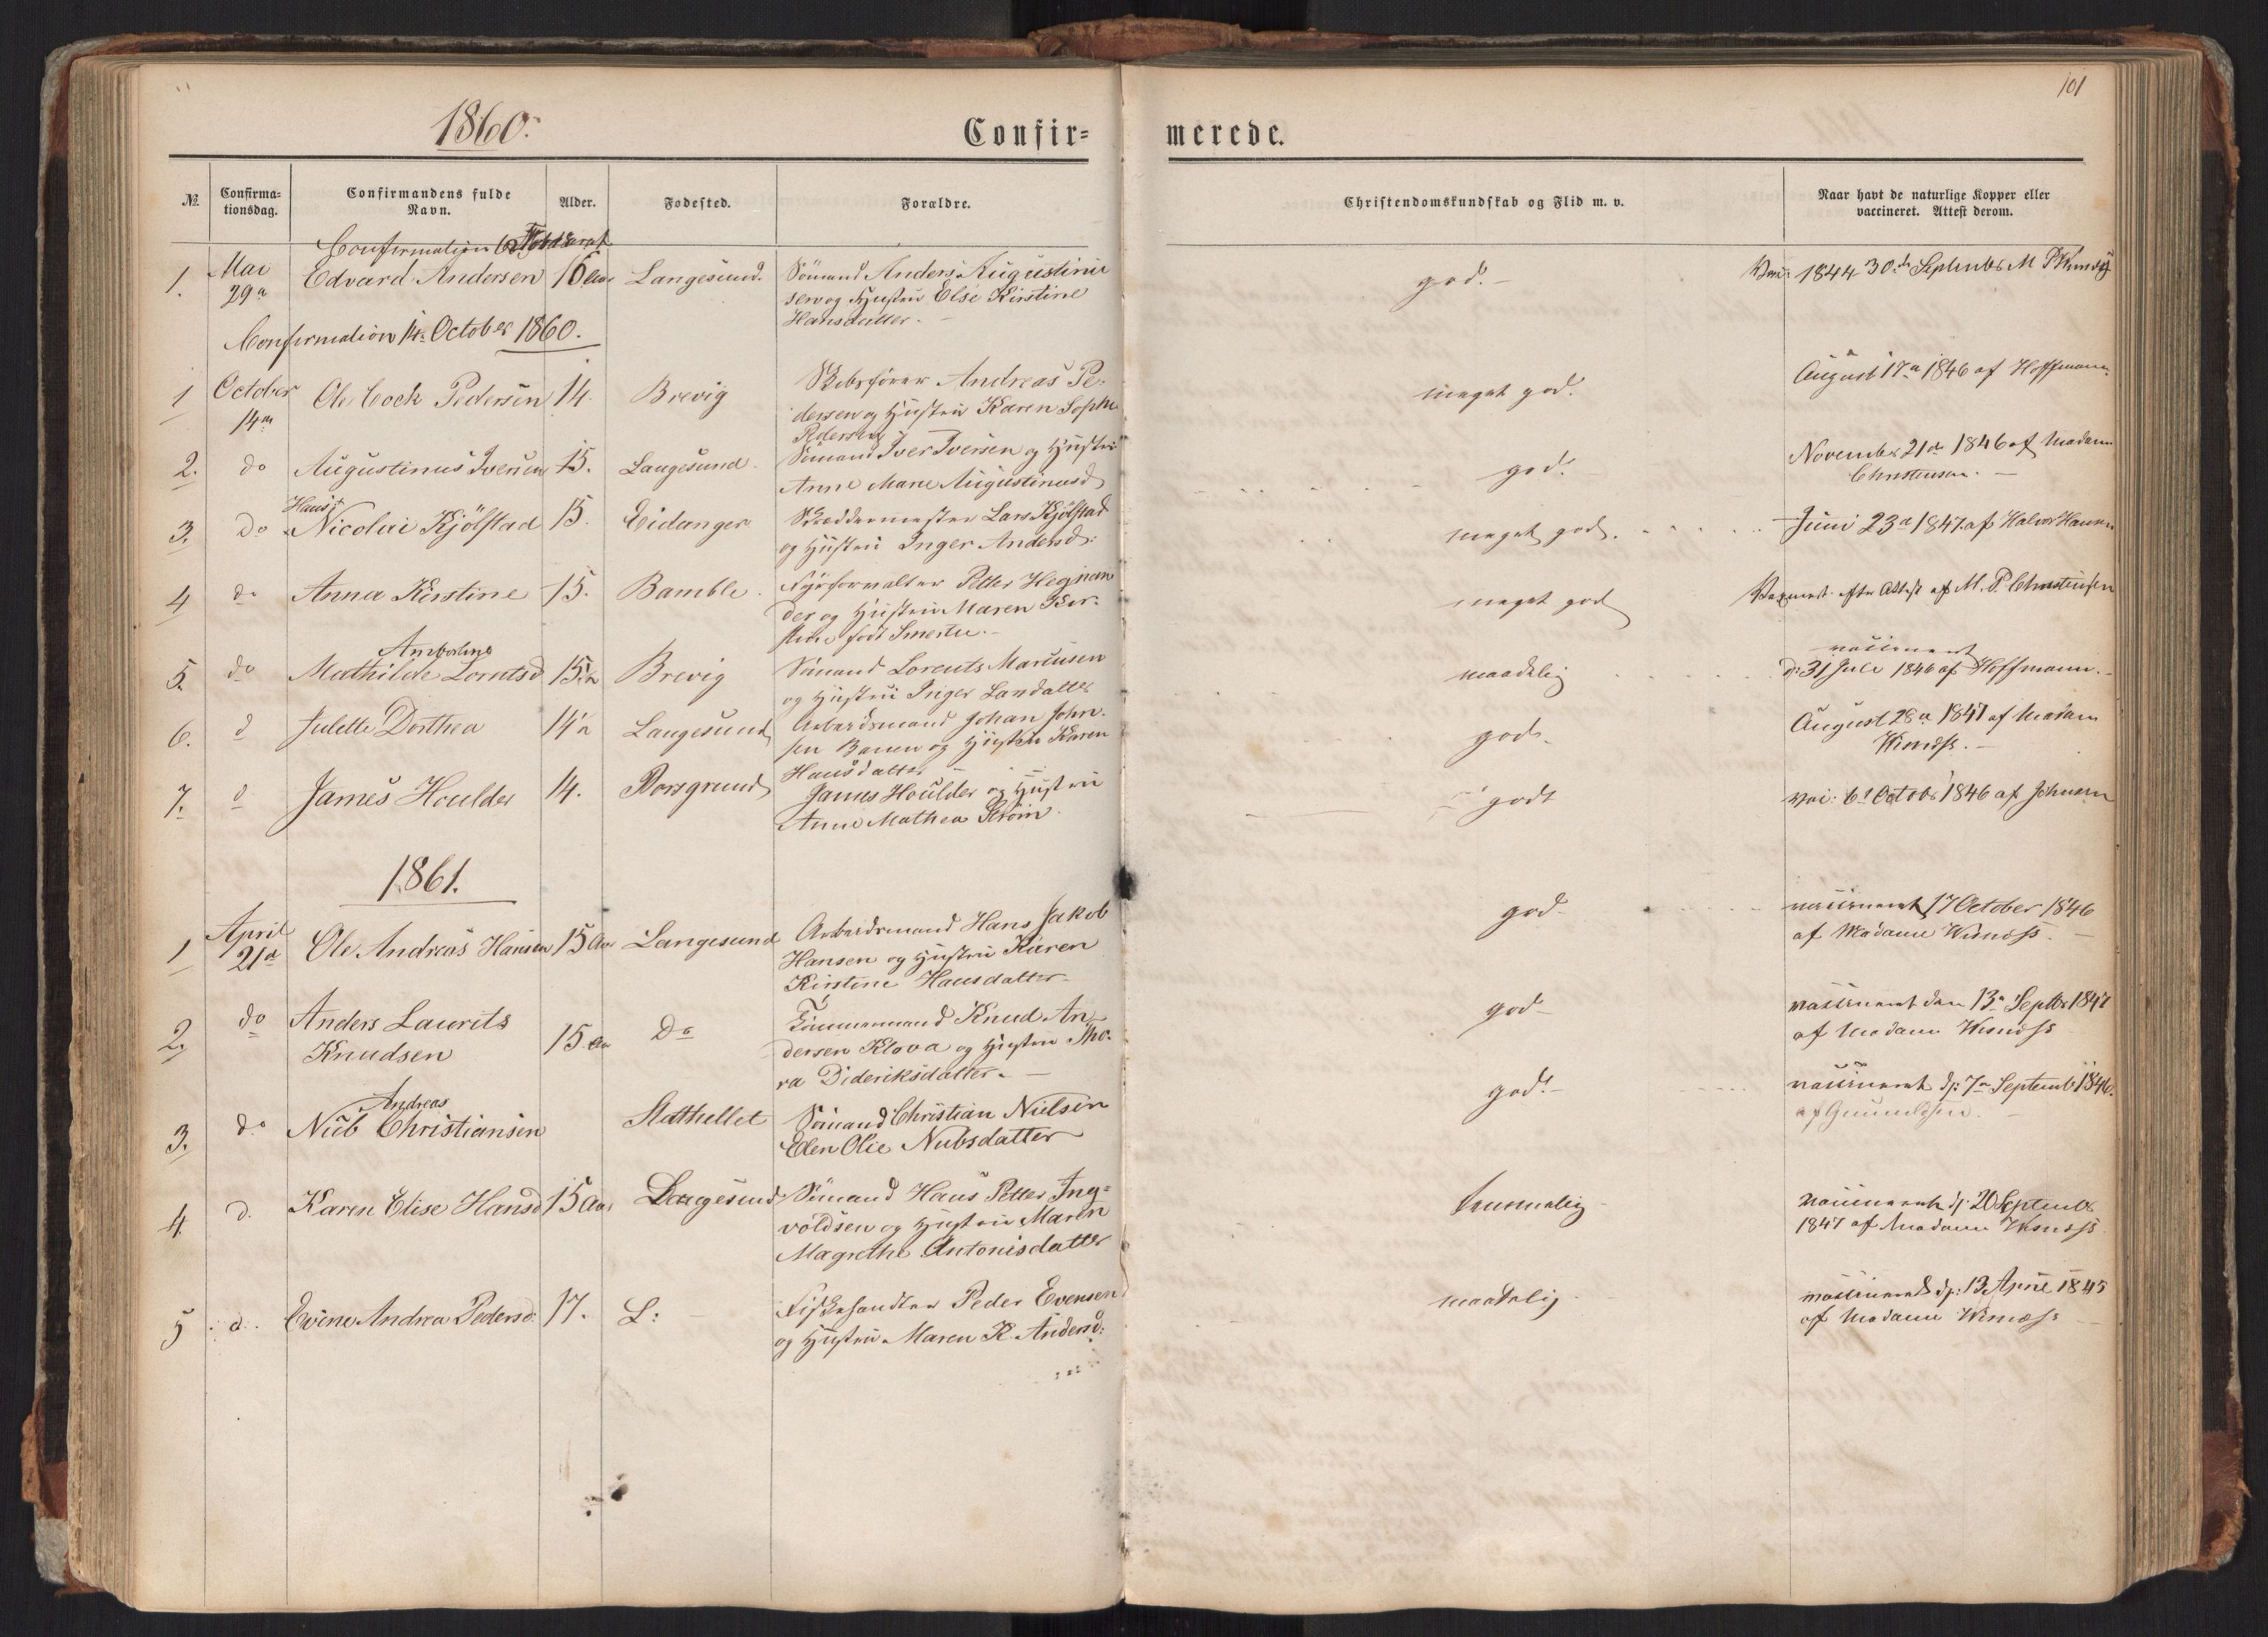 101
1860.
Confir= merede.
№.
Confirma=
tionsdag.
Confirmandens fulde
Navn.
Alder.
Fødested.
Forældre.
Christendomskundskab og Flid m. v.
Naar havt de naturlige Kopper eller
vaccineret. Attest derom.
Confirmation
1. Mai Edvard Andersen 16 Aar Langesund. Sömand Anders Augustinu god.- 1844 30 Septembr M
29 sen og Hustru Else Kirstine
Hansdatter.-
Confirmation 14. October 1860.
1 October Ole Cock Pedersen 14. Brevig Skibsfører Andreas Pe- meget god. August 17 1846 af Hoffmann
14 dersen og Hustru Karen Sophie
Pedersen
2. do Augustinus Iversen 15. Langesund. Sömand Iver Iversen og Hustru god. November 21 1846 af Madam
Anne Marie Augustinusd Christensen.-
Hans
3. Do Nicolai Kjölstad 15. Eidanger Skræddermester Lars Kjölstad meget god. Juni 23 1847. af Halvor Hansen
og Hustru Inger Andersd:
4 do Anna Kirstine 15. Bamble. Fyrforvalter Petter Hegnan meget god efter Attest af M. P. Christensen
der og Hustru Maren Kir-
stine født
5. do Mathilde Lorntsd 15½ Brevig Sömand Lorents Martinsen maadelig d: 31 Juli 1846 af Hoffmann.-
og Hustru Inger Larsdatter
6. d Julette Dorthea 14½ Langesund Arbeidsmand Johan John- god. August 28 1847 af Madam
sen og Hustru Karen
Hansdatter
7. d James Houlder 14. Porsgrund James Houlder og Hustru godt 6 October 1846 af Johnsen
Anne Mathea Ström.
1861.
1 April Ole Andreas Hansen 15 Aar Langesund Arbeidsmand Hans Jakob god- vaccineret 17 October 1846
21 Hansen og Hustru Karen af Madame
Kirstine Hansdatter
2. do Anders Laurits 15 Aar Do Tömmermand Knud An- god- vaccineret den 13 Septbr 1847
Knudsen dersen Klova og Hustru Tho- af Madam
ra Dideriksdatter.-
Andreas
3. do Niels Christiansen Stathellet Sömand Christian Nielsen god.- vaccineret d: 7 Septemb 1846.
Elen Olie Nielsdatter af Gunnildsen.
4. d. Karen Elise Hansd 15 Aar Langesund Sömand Hans Petter Ing= temmelig- vaccineret d: 20 Septembr
voldsen og Hustru Maren 1847 af Madame
Magrethe Antonisdatter
5 d. Evine Andrea Pedersd: 17. L: Fiskehandler Peder Evensen maadelig vaccineret d: 13 April 1845
og Hustru Maren K. Andersd: af Madame